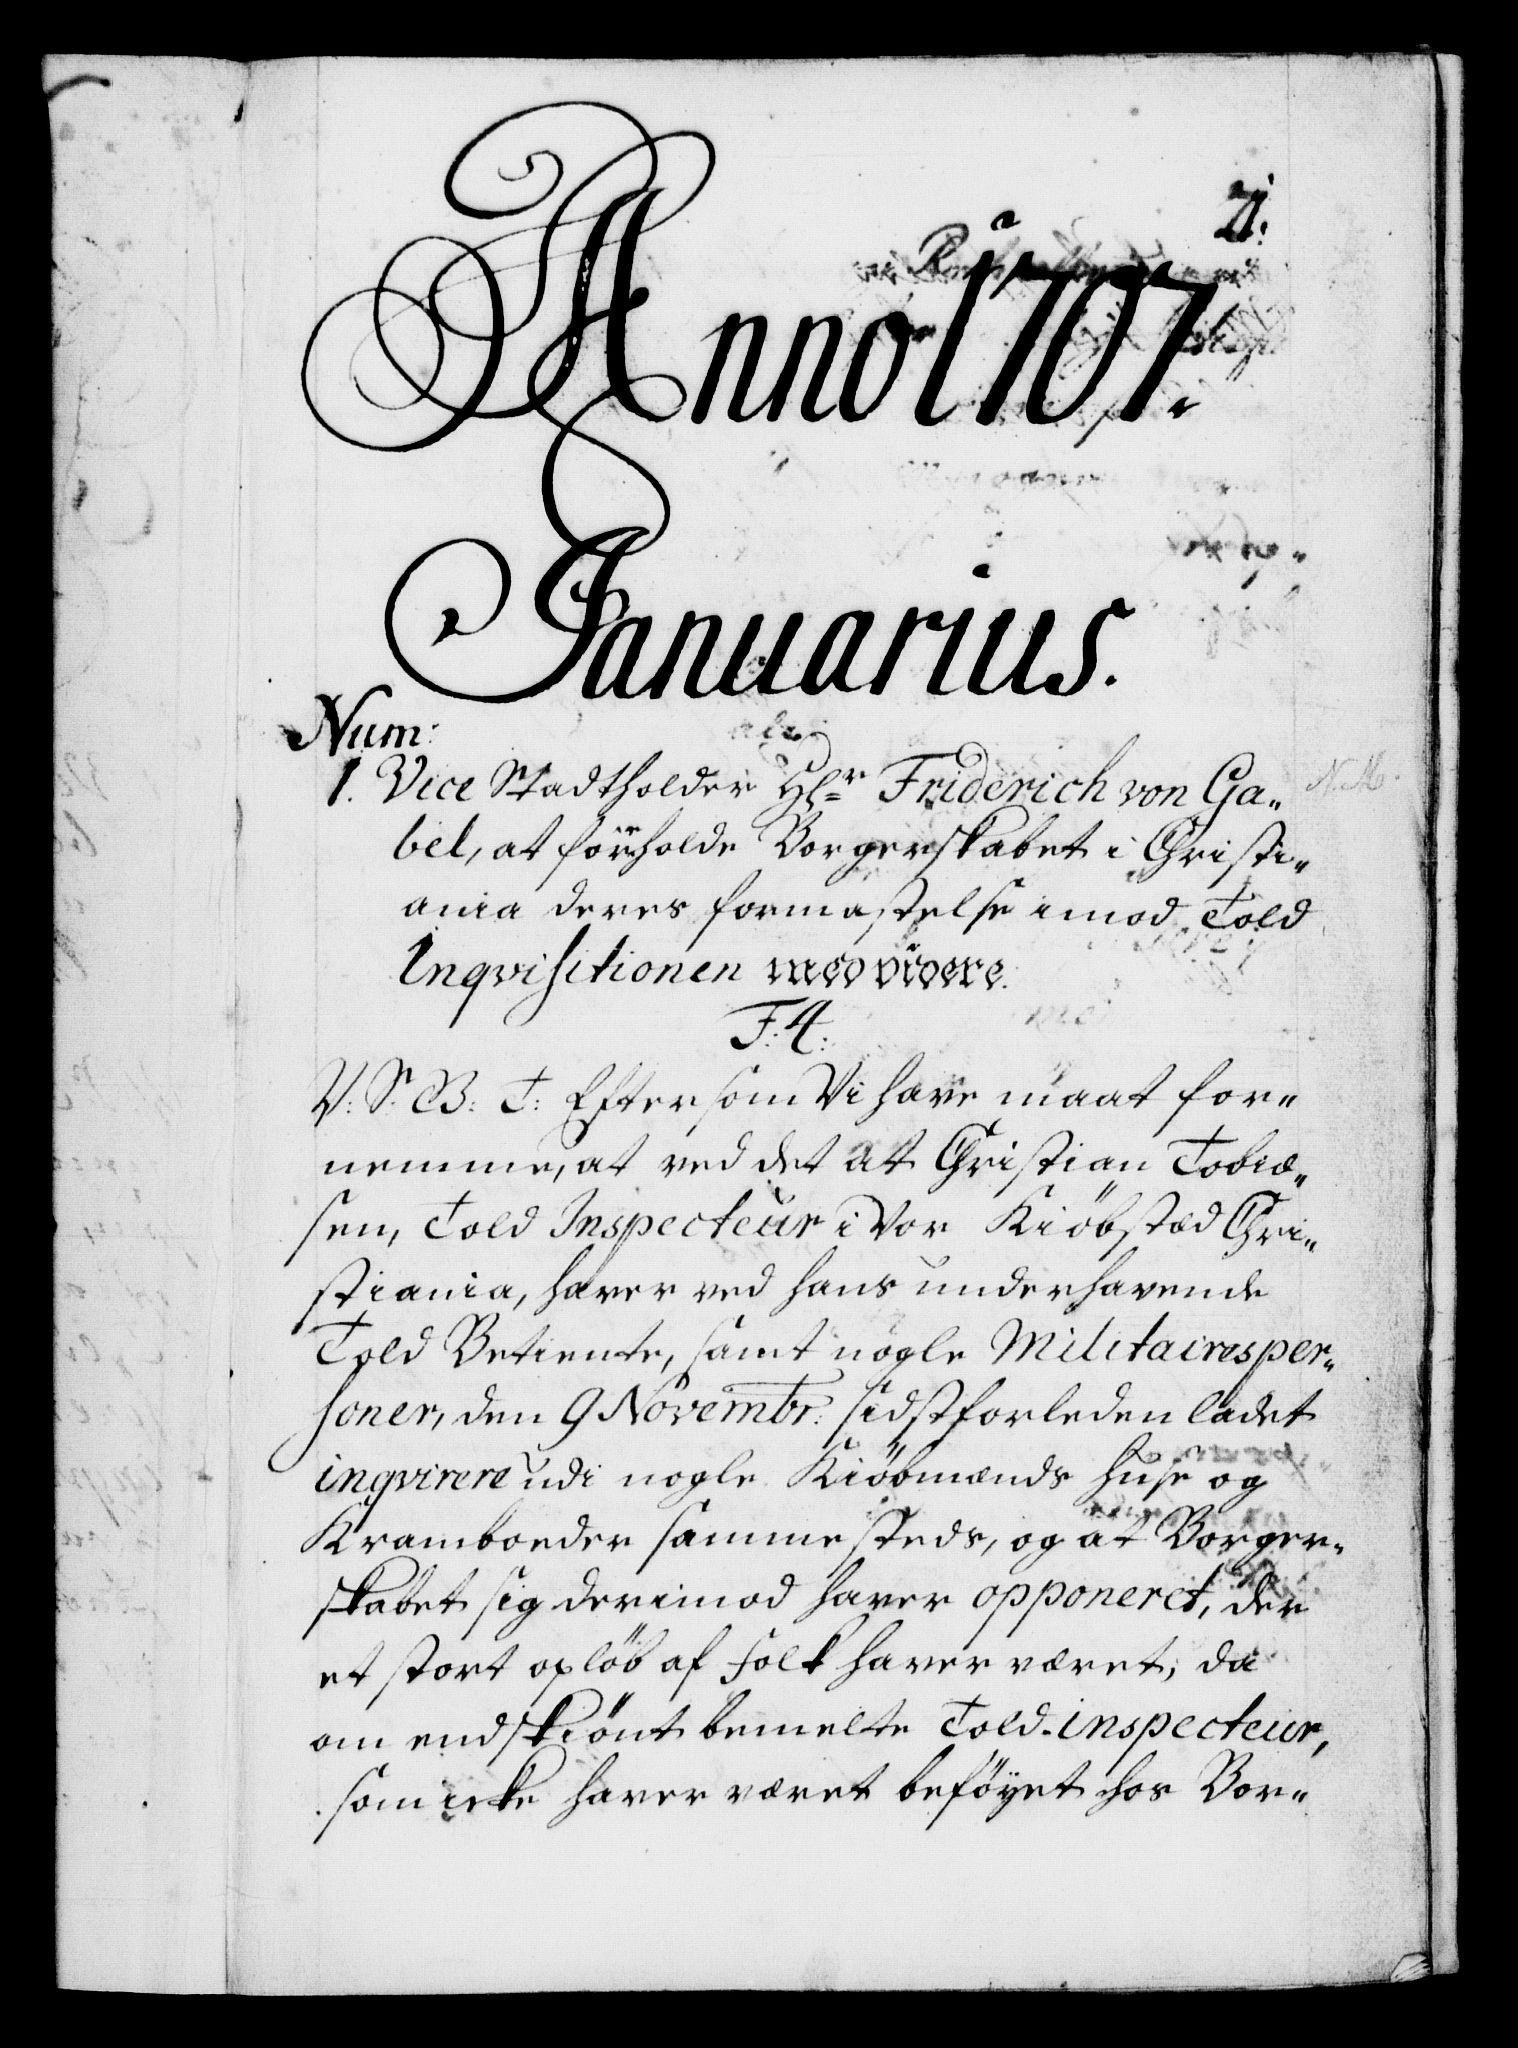 21.
Anno 1707.
Januarius.
Num:
1. Vice Stadtholder Hr Friderich von Ga„
bel, at forreholde Borgerskabet i Christi„
ania deres formastelse imod Told
Inqvisitionen med videre.
F. 4.
V: S: B: T: Eftersom Vi have maat for„
nemme, at ved det at Christian Tobiæ„
sen, Told Inspecteur i Vor Kiöbstæd Chri„
stiania, haver ved hans underhavende
Told Betiente, samt nogle Militairesper„
soner, den 9 Novembr: sidstforleden ladet
inqvirere udi nogle Kiöbmænds huse og
Kramboeder sammesteds, og at Borger„
skabet sig derimod haver opponeret, der
et stort oplöb af folk haver været, da
om endskiönt bemelte Told-inspecteur,
som icke haver været beföyet hos Bor„